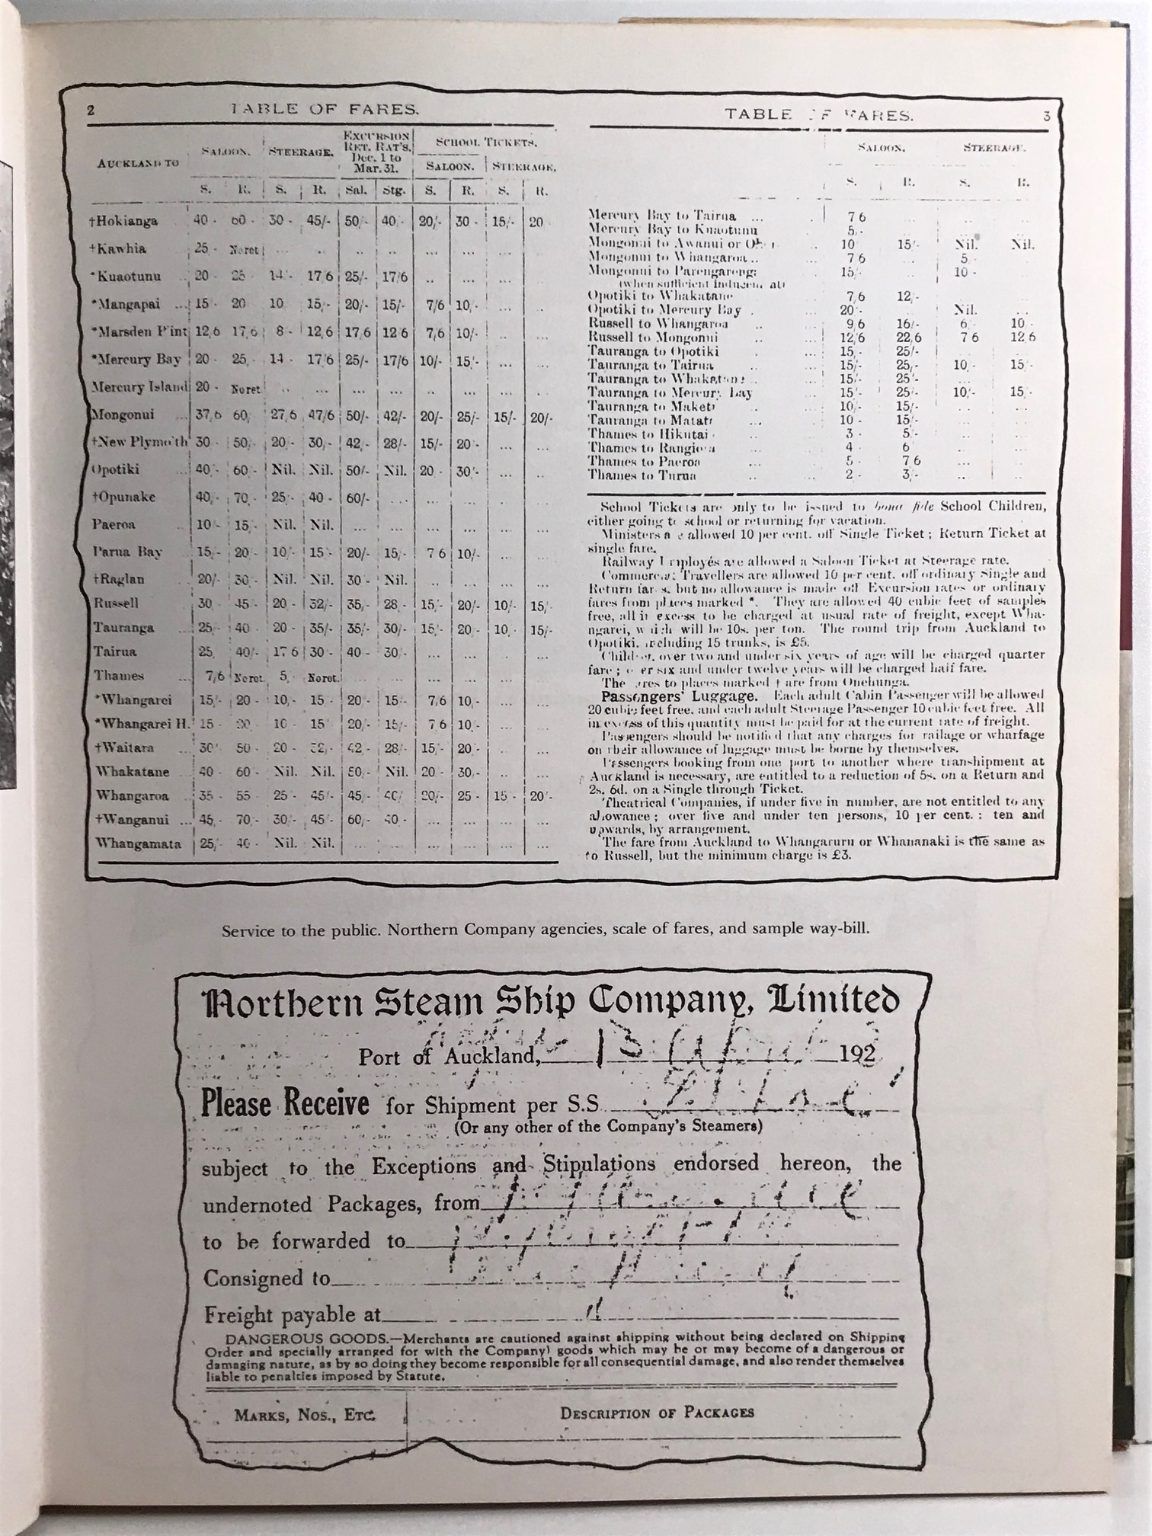 2 TABLE OF FARES.
AUCKLAND TO SALOON. STEERAGE. EXCURSION RET. RAT'S, Dec. 1 to Mar. 31. SCHOOL TICKETS.
SALOON. STEERAGE.
S. R. S. R. Sal. Stg. S. R. S. R.
†Hokianga 40 - 60 - 30 - 45/- 50 - 40 - 20/- 30 - 15/- 20
†Kawhia 25 - No ret
*Kuaotunu 20 - 25 - 14 - 17 6 25/- 17/6 .. ...
*Mangapai ... 15 - 20 10 15/- 20/- 15/- 7/6 10/-
*Marsden P'int 12,6 17,6 8 - 12,6 17,6 12 6 7,6 10/- ...
*Mercury Bay 20 - 25 - 14 - 17 6 25/- 17/6 10/- 15/- ... ...
Mercury Island 20 - No ret
Mongonui ... 37,6 60/- 27,6 47/6 50/- 42/- 20/- 25/- 15/- 20/-
†New Plymo'th 30 - 50/- 20 - 30/- 42/- 28/- 15/- 20 - ... ...
Opotiki ... 40 - 60 - Nil. Nil. 50/- Nil. 20 - 30/- ... ...
†Opunake 40/- 70 - 25 - 40 - 60/- ...
Paeroa 10 - 15/- Nil. Nil. ... ...
Parua Bay 15/- 20 - 10/- 15 - 20/- 15/- 7 6 10/- ... ...
†Raglan 20/- 30/- Nil. Nil. 30 - Nil. ...
Russell 30 45 - 20 - 32/- 35/- 28 - 15/- 20/- 10/- 15/-
Tauranga ... 25/- 40 - 20 - 35/- 35/- 30/- 15/- 20 - 10 - 15/-
Tairua ... 25 40/- 17 6 30 - 40 - 30 -
Thames ... 7/6 No ret. 5/- No ret. ...
*Whangarei 15/- 20 - 10/- 15 - 20 - 15 - 7,6 10/- ...
*Whangarei H. 15 - 20 10 - 15 20/- 15/- 7 6 10/- ...
†Waitara ... 30 50 - 20 - 32/- 42 - 28/- 15/- 20 -
Whakatane 40 - 60 - Nil. Nil. 50/- Nil. 20 - 30/-
Whangaroa ... 35 - 55 25 - 45/- 45/- 40/- 20/- 25 - 15 - 20/-
†Wanganui ... 45/- 70 - 30/- 45 - 60/- 40 - ... ...
Whangamata 25/- 40 - Nil. Nil. ... ...
TABLE OF FARES. 3
SALOON. STEERAGE.
S. R. S. R.
Mercury Bay to Tairua ... 7 6
Mercury Bay to Kuaotunu 5 -
Mongonui to Awanui or 10 15/- Nil. Nil.
Mongonui to Whangaroa .. 7 6 5 -
Mongonui to Parengarenga 15/- 10 -
(when sufficient inducem nt)
Opotiki to Whakatane 7,6 12/-
Opotiki to Mercury Bay . 20/- Nil.
Russell to Whangaroa 9,6 16/- 6 10
Russell to Mongonui 12,6 22,6 7 6 12 6
Tauranga to Opotiki 15/- 25/-
Tauranga to Tairua 15/- 25/- 10/- 15/-
Tauranga to Whakatane 15/- 25/-
Tauranga to Mercury Bay 15/- 25/- 10/- 15/-
Tauranga to Maketu 10/- 15/-
Tauranga to Matata 10 - 15/-
Thames to Hikutai 3 - 5/-
Thames to Rangiora 4 - 6
Thames to Paeroa 5 - 7 6
Thames to Turua 2 - 3/-
School Tickets are only to be issued to bona fide School Children,
either going to school or returning for vacation.
Ministers are allowed 10 per cent. off Single Ticket; Return Ticket at
single fare.
Railway Employés are allowed a Saloon Ticket at Steerage rate.
Commercial Travellers are allowed 10 per cent. off ordinary Single and
Return fares, but no allowance is made off Excursion rates or ordinary
fares from places marked *. They are allowed 40 cubic feet of samples
free, all in excess to be charged at usual rate of freight, except Wha-
ngarei, which will be 10s. per ton. The round trip from Auckland to
Opotiki, including 15 trunks, is £5.
Children over two and under six years of age will be charged quarter
fare; over six and under twelve years will be charged half fare.
The fares to places marked † are from Onehunga.
Passengers' Luggage. Each adult Cabin Passenger will be allowed
20 cubic feet free, and each adult Steerage Passenger 10 cubic feet free. All
in excess of this quantity must be paid for at the current rate of freight.
Passengers should be notified that any charges for railage or wharfage
on their allowance of luggage must be borne by themselves.
Passengers booking from one port to another where transhipment at
Auckland is necessary, are entitled to a reduction of 5s. on a Return and
2s. 6d. on a Single through Ticket.
Theatrical Companies, if under five in number, are not entitled to any
allowance; over five and under ten persons, 10 per cent.; ten and
upwards, by arrangement.
The fare from Auckland to Whangaruru or Whananaki is the same as
to Russell, but the minimum charge is £3.
Service to the public. Northern Company agencies, scale of fares, and sample way-bill.
Northern Steam Ship Company, Limited
Port of Auckland, 13 192
Please Receive for Shipment per S.S.
(Or any other of the Company's Steamers)
subject to the Exceptions and Stipulations endorsed hereon, the
undernoted Packages, from
to be forwarded to
Consigned to
Freight payable at
DANGEROUS GOODS.—Merchants are cautioned against shipping without being declared on Shipping
Order and specially arranged for with the Company) goods which may be or may become of a dangerous or
damaging nature, as by so doing they become responsible for all consequential damage, and also render themselves
liable to penalties imposed by Statute.
MARKS, NOS., ETC. DESCRIPTION OF PACKAGES